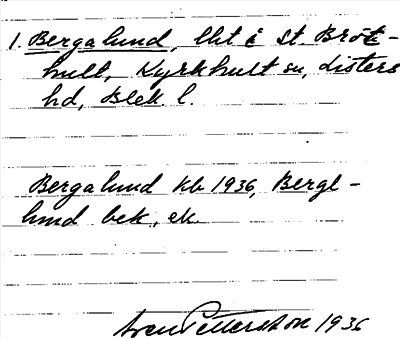 1. Bergalund, lht i St. Bröt-
hult, Kyrkhult sn, Listers
hd, Blek. l.
Bergalund Kb 1936, Bergl-
lund bek, ek.
Sven Pettersson 1936